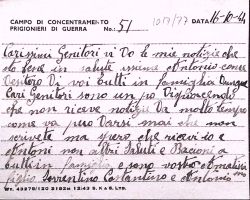 CAMPO DI CONCENTRAMENTO
PRIGIONIERI DI GUERRA
No. 51
1017/77
DATA 16-10-4
Carissimi Genitori vi Do le mie notizie che
sto bene in salute Antonio come
Di voi tutti in famiglia Dunque
Cari Genitori sono un po Dispiacendo
che non riceve notizie Da molto tempo
come va pero Darsi mai che non
scrivete ma spero che ricevi io e
Antoni non altri Saluti e Bacioni a
tutti in famiglia e sono vostro
figlio Sorrentino Costantino e Antonio
WT. 43979/120 3182M 12/43 S. & S. LTD.